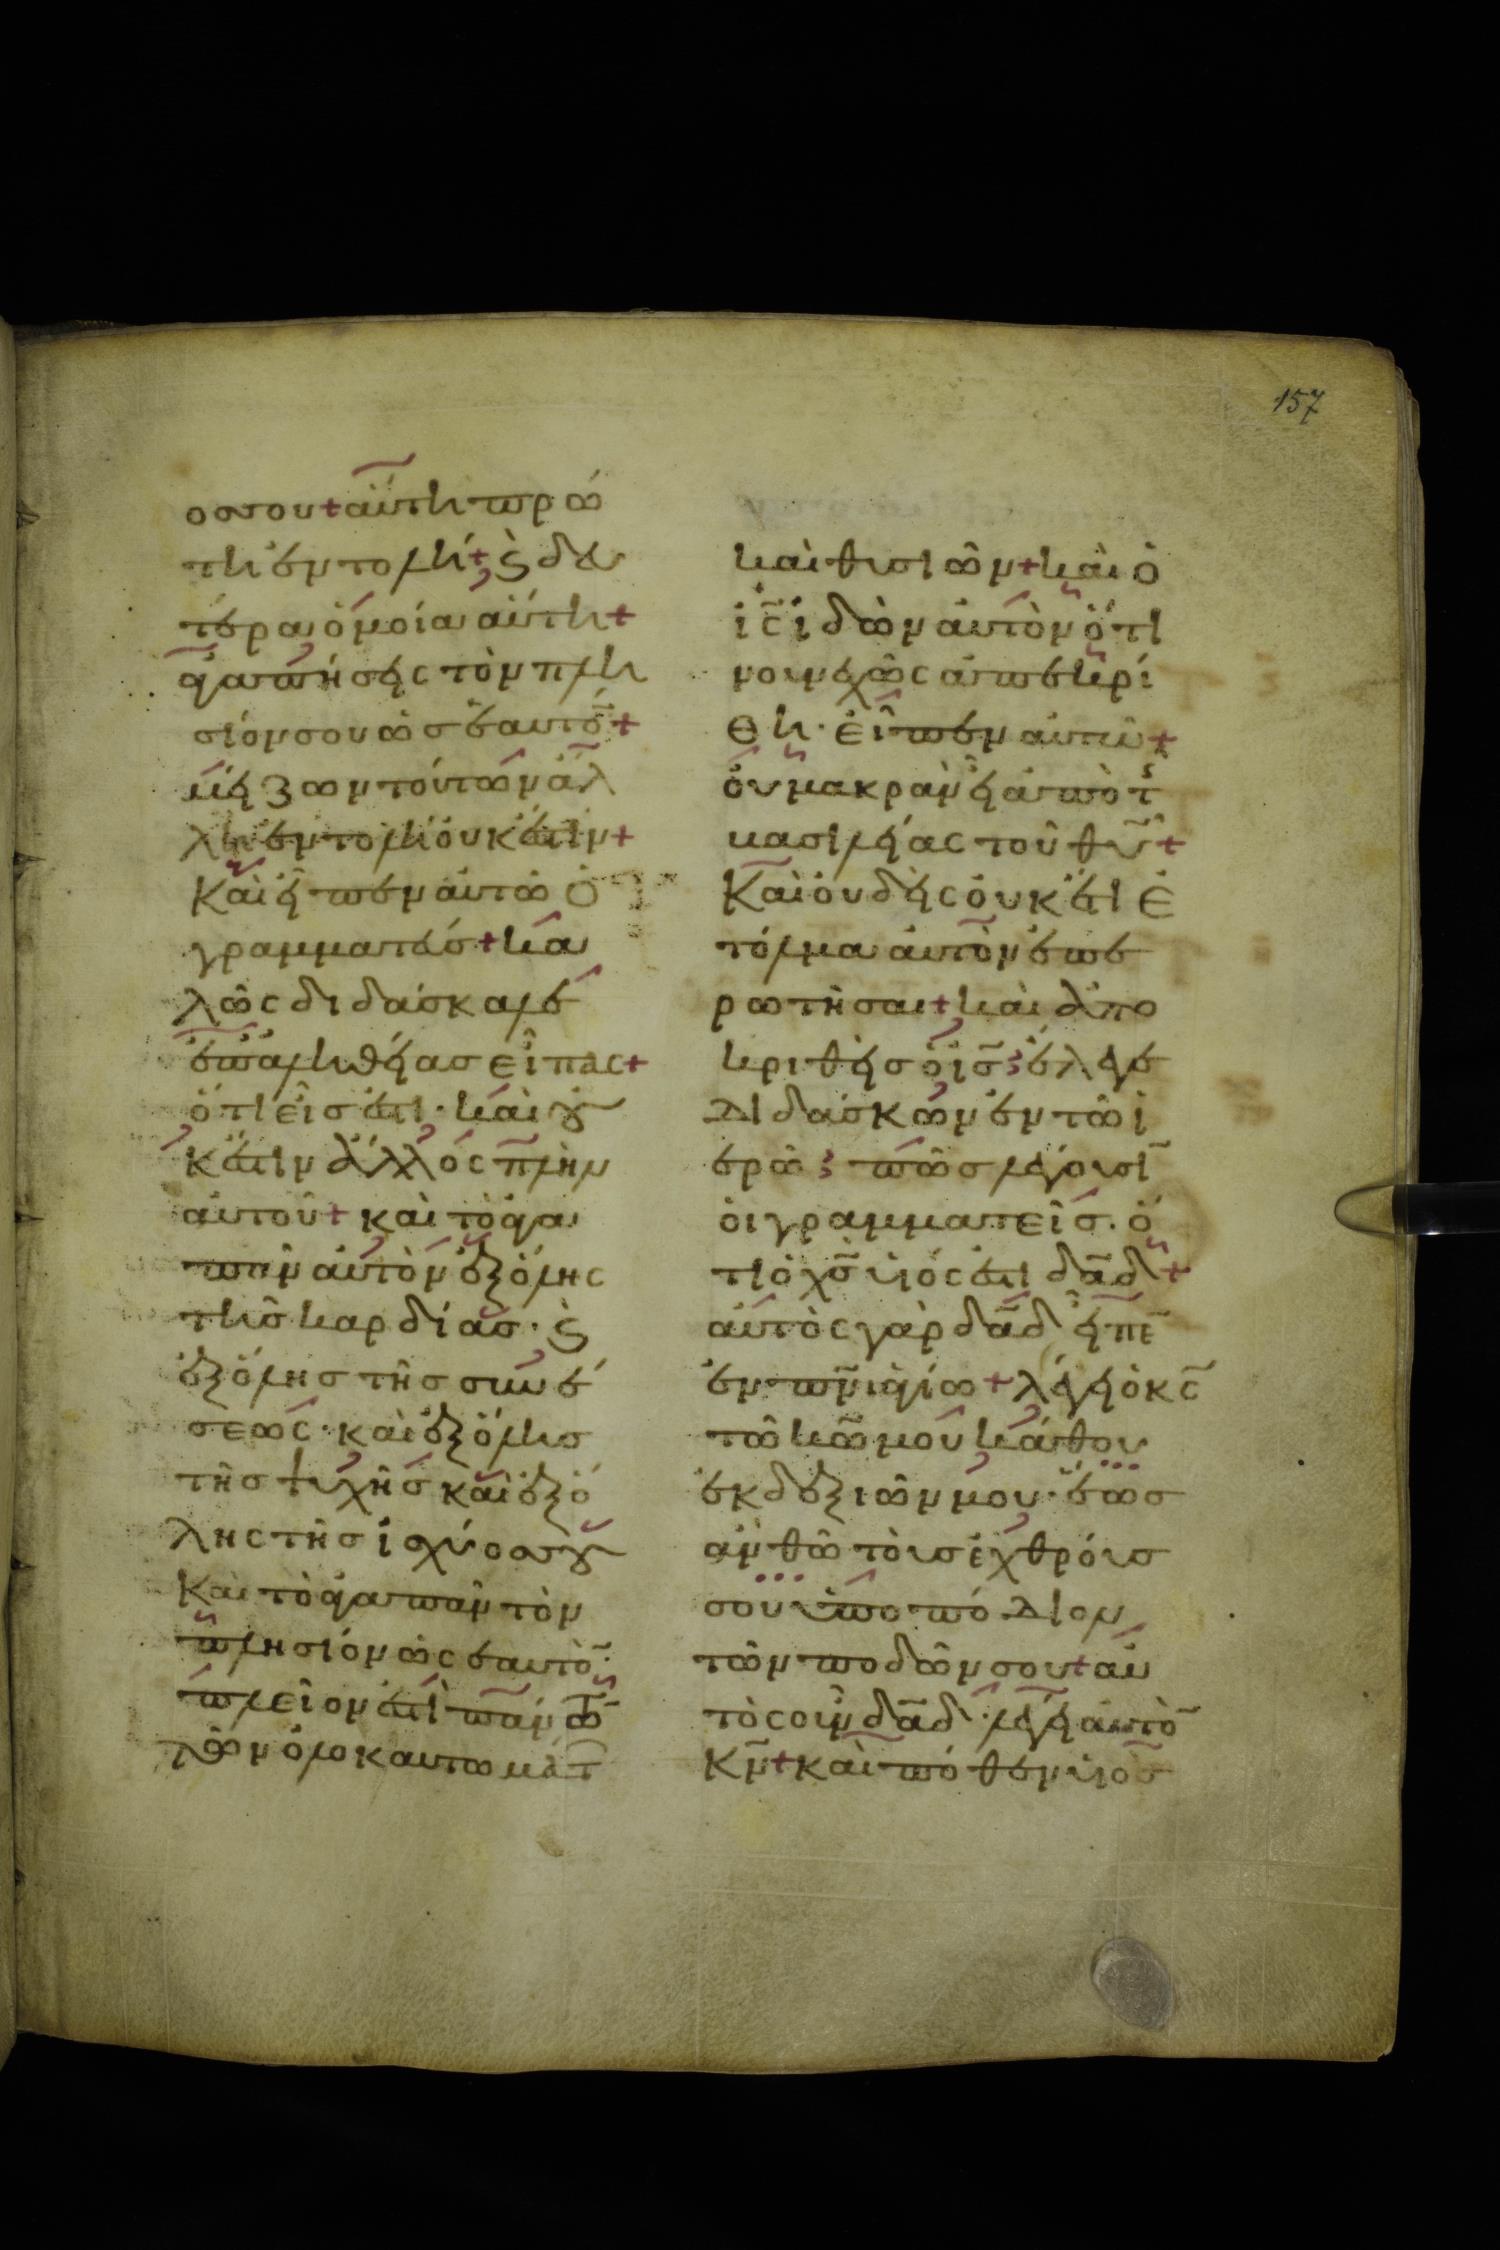 157
οσ σου + αὕτη πρώ
τη ἐντολή + ϗ δευ
τέρα ὁμοία αὐτῆ +
ἀγαπήσεις τὸν πλη
σίον σου ὡσ ἑαυτό̄ +
μείζων τούτων ἄλ
λη ἐντολὴ οὐκ ἔστιν +
Καὶ εἶπεν αὐτῶ ὁ
γραμματεύσ + κα
λῶς διδάσκαλε
ἐπ' ἀληθείασ εἶπας +
ὅτι εἷσ ἐστι · καὶ οὐ
κ ἔστιν ἄλλος πλὴν
αὐτοῦ + καὶ τὸ ἀγα
πᾶν αὐτὸν ἐξ ὅλης
τῆσ καρδίασ · ϗ
ἐξ ὅλησ τῆσ συνέ
σεως · καὶ ἐξ ὅλησ
τῆσ ψυχῆσ καὶ ἐξ ὅ
λης τῆσ ἰσχύοσ αὐτοῦ
Καὶ τὸ ἀγαπᾶν τὸν
πλησίον ὡς ἑαυτὸ̄ ·
πλεῖον ἐστὶ πάντω̄
τῶν ὁλοκαυτωμάτ
καὶ θυσιῶν + καὶ ὁ
ι̅ς̅ ἰδὼν αὐτὸν ὅτι
νουνεχῶς ἀπεκρί
θη · εἶπεν αὐτῶ +
οὐ μακρὰν εἶ ἀπὸ τ
βασιλείας τοῦ θυ̅ +
Καὶ οὐδεὶς οὐκ έτι ἐ
τόλμα αὐτὸν ἐπε
ρωτῆσαι + καὶ ἀπο
κριθεὶσ ὁ ισ̅ ἔλεγε
Διδάσκων ἐν τῶ ἱ
ερῶ πῶσ λέγουσῑ
οἱ γραμματεῖσ · ὅ
τι ὁ χσ̅ υἱός ἐστι δα̅δ +
αὐτὸς γὰρ δα̅δ εἶπε̄
ἐν πν̅ι ἁγίω + λέγει ὁ κς̅
τῶ κω̅ μου κάθου
ἐκ δεξιῶν μου · ἕωσ
ἂν θῶ τοὺσ ἐχθρούσ
σου ὑποπόδιον
τῶν ποδῶν σου + αὐ
τὸς οὖν δα̅δ · λέγει αὐτὸ̄
Κν̅ + καὶ πόθεν υἱὸσ